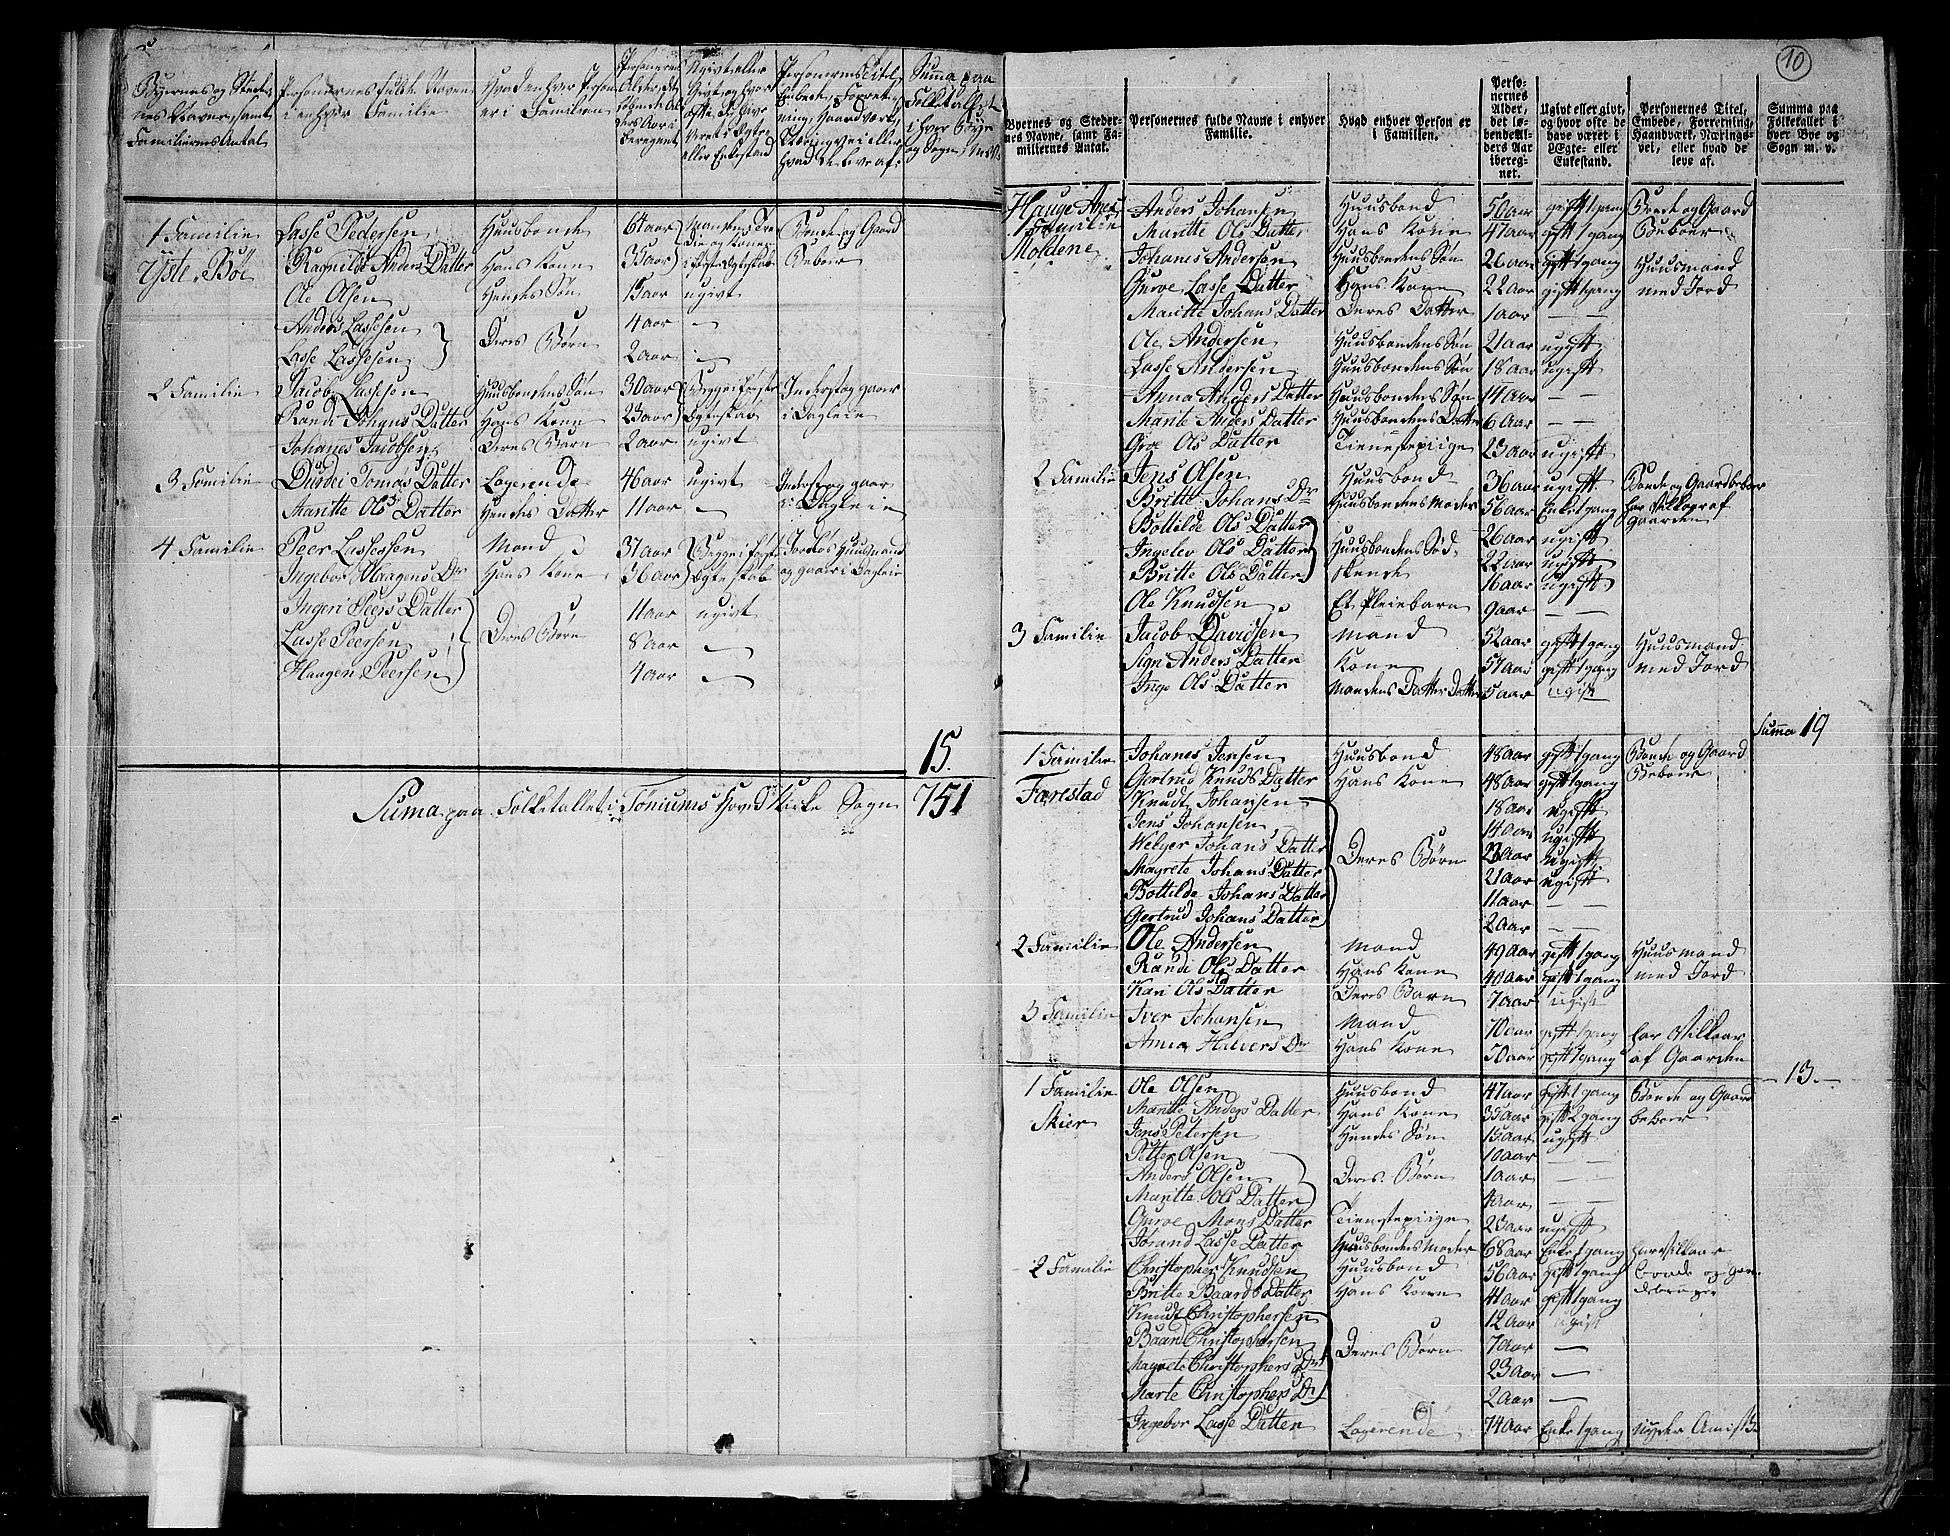 Byernes og Stede-
nes Navne, samt
Familiernes Antal
Personernes fulde Navne
i enhver Familie
Hvad enhver Person
er i Familien
Personernes
Alder, det
løbende Al-
ders Aar i
beregnet
Ugivt eller
givt, og hvor
ofte de have
været i Egte-
eller Enkestand
Personernes Titel,
Embede, Forret-
ning, Haandværk,
Næringsvei eller
hvad de leve af
Summa paa
Folketallet
i hver Bye
og Sogn
1 Familie Lasse Pedersen Huusbonde 64 aar Bonde og Gaard
Yste Böe Ragnild Anders Datter Hans Kone 35 aar Beboer
Ole Olsen Hendes Søn 15 aar ugivt
Anders Lassesen 4 aar —
Deres Børn
Lasse Lassesen 2 aar —
2 Familie Jacob Lassesen Huusbondens Søn 30 aar Begge i første Inderst og gaar
Randi Johans Datter Hans Kone 23 aar Egteskab i Dagleie
Johanes Jacobsen Deres Barn 2 aar ugivt
3 Familie Durdei Tomas Datter Logerende 46 aar ugivt Inderst og gaar
Maritte Ols Datter Hendes Datter 11 aar — i Dagleie
4 Familie Peer Lassesen Mand 37 aar Begge i første Jordløs Huusmand
Ingebor Haagens Dr Hans Kone 36 aar Egteskab og gaar i Dagleie
Ingeri Peers Datter 11 aar ugivt
Lasse Peersen Deres Børn 8 aar —
Haagen Peersen 4 aar —
15
Suma paa Folketallet i Töniums Hoved Kirke Sogn 751
10
Byernes og Steder-
nes Navne,
samt Fa-
miliernes Antal.
Personernes fulde Navne i enhver
Familie.
Hvad enhver Person er
i Familien.
Perso-
nernes
Alder,
det lø-
bende Al-
ders Aar
ibereg-
net.
Ugivt eller givt,
og hvor ofte de
have været i
Ægte- eller
Enkestand.
Personernes Titel,
Embede, Forretning,
Haandværk, Nærings-
vei, eller hvad de
leve af.
Summa paa
Folketallet i
hver Bye og
Sogn m. v.
Hauge Anex Anders Johansen Huusbond 50 aar gift 1 gang Bonde og Gaard
1 Familie Maritte Ols Datter Hans Kone 47 aar gift 1 gang Beboer
Moldene Johanes Andersen Huusbondens Søn 26 aar gift 1 gang Huusmand
Gurve Lasse Datter Hans Kone 22 aar gift 1 gang med Jord
Maritte Johans Datter Deres Datter 1 aar —
Ole Andersen Huusbondens Søn 21 aar ugift
Lasse Andersen Huusbondens Søn 18 aar ugift
Anna Anders Datter Huusbondens Søn 14 aar — —
Marite Anders Datter Huusbondens Datter 6 aar — —
Groe Ols Datter Tienestepiige 23 aar ugift
2 Familie Jens Olsen Huusbond 36 aar ugift Bonde og Gaardbeboer
Britte Johans Dr Huusbondens Moder 56 aar Enke 1 gang har Vilkor af
Bottilde Ols Datter 26 aar ugift Gaarden
Ingelev Ols Datter Huusbondens Sød- 22 aar ugift
Britte Ols Datter skende 16 aar ugift
Ole Knudsen Et Pleiebarn 9 aar —
3 Familie Jacob Davidsen Mand 52 aar gift 1 gang Huusmand
Sign Anders Datter Kone 57 aar gift 1 gang med Jord
Inge Ols Datter Mandens Datter Datter 5 aar ugift
Summa 19
1 Familie Johanes Jensen Huusbond 48 aar gift 1 gang Bonde og Gaard
Gertrud Knuds Datter Hans Kone 48 aar gift 1 gang Beboer
Farestad Knudt Johansen 18 aar ugift
Jens Johansen 14 aar ugift
Welger Johans Datter Deres Børn 23 aar ugift
Magrete Johans Datter 21 aar ugift
Bottilde Johans Datter 11 aar — —
Gertrud Johans Datter 2 aar — —
2 Familie Ole Andersen Mand 49 aar gift 1 gang Huusmand
Randi Ols Datter Hans Kone 40 aar gift 1 gang med Jord
Kari Ols Datter Deres Barn 7 aar ugift
3 Familie Iver Johansen Mand 70 aar gift 1 gang har Vilkaar
Anna Halvers Dr Hans Kone 50 aar gift 1 gang af Gaarden
13.
1 Familie Ole Olsen Huusbond 47 aar gift 1 gang Bonde og Gaard
Maritte Anders Datter Hans Kone 35 aar gift 2 gang beboer
Skier Jens Petersen Hendes Søn 15 aar ugift
Petter Olsen 10 aar — —
Anders Olsen Deres Børn 1 aar — —
Maritte Ols Datter 4 aar — —
Gurve Mons Datter Tienestepiige 25 aar ugift
Jorand Lasse Datter Huusbondens Moder 68 aar Enke 1 gang har Vilkaar
2 Familie Christopher Knudsen Huusbond 56 aar gift 1 gang bonde og gaar-
Britte Baards Datter Hans Kone 41 aar gift 1 gang
Knudt Christophersen 12 aar ugift
Baar Christophersen Deres Børn 7 aar —
Magrete Christophers Dr 23 aar —
Marte Christophers Dr 2 aar —
Ingebor Lasse Datter Logerende 74 aar Enke 1 gang nyder